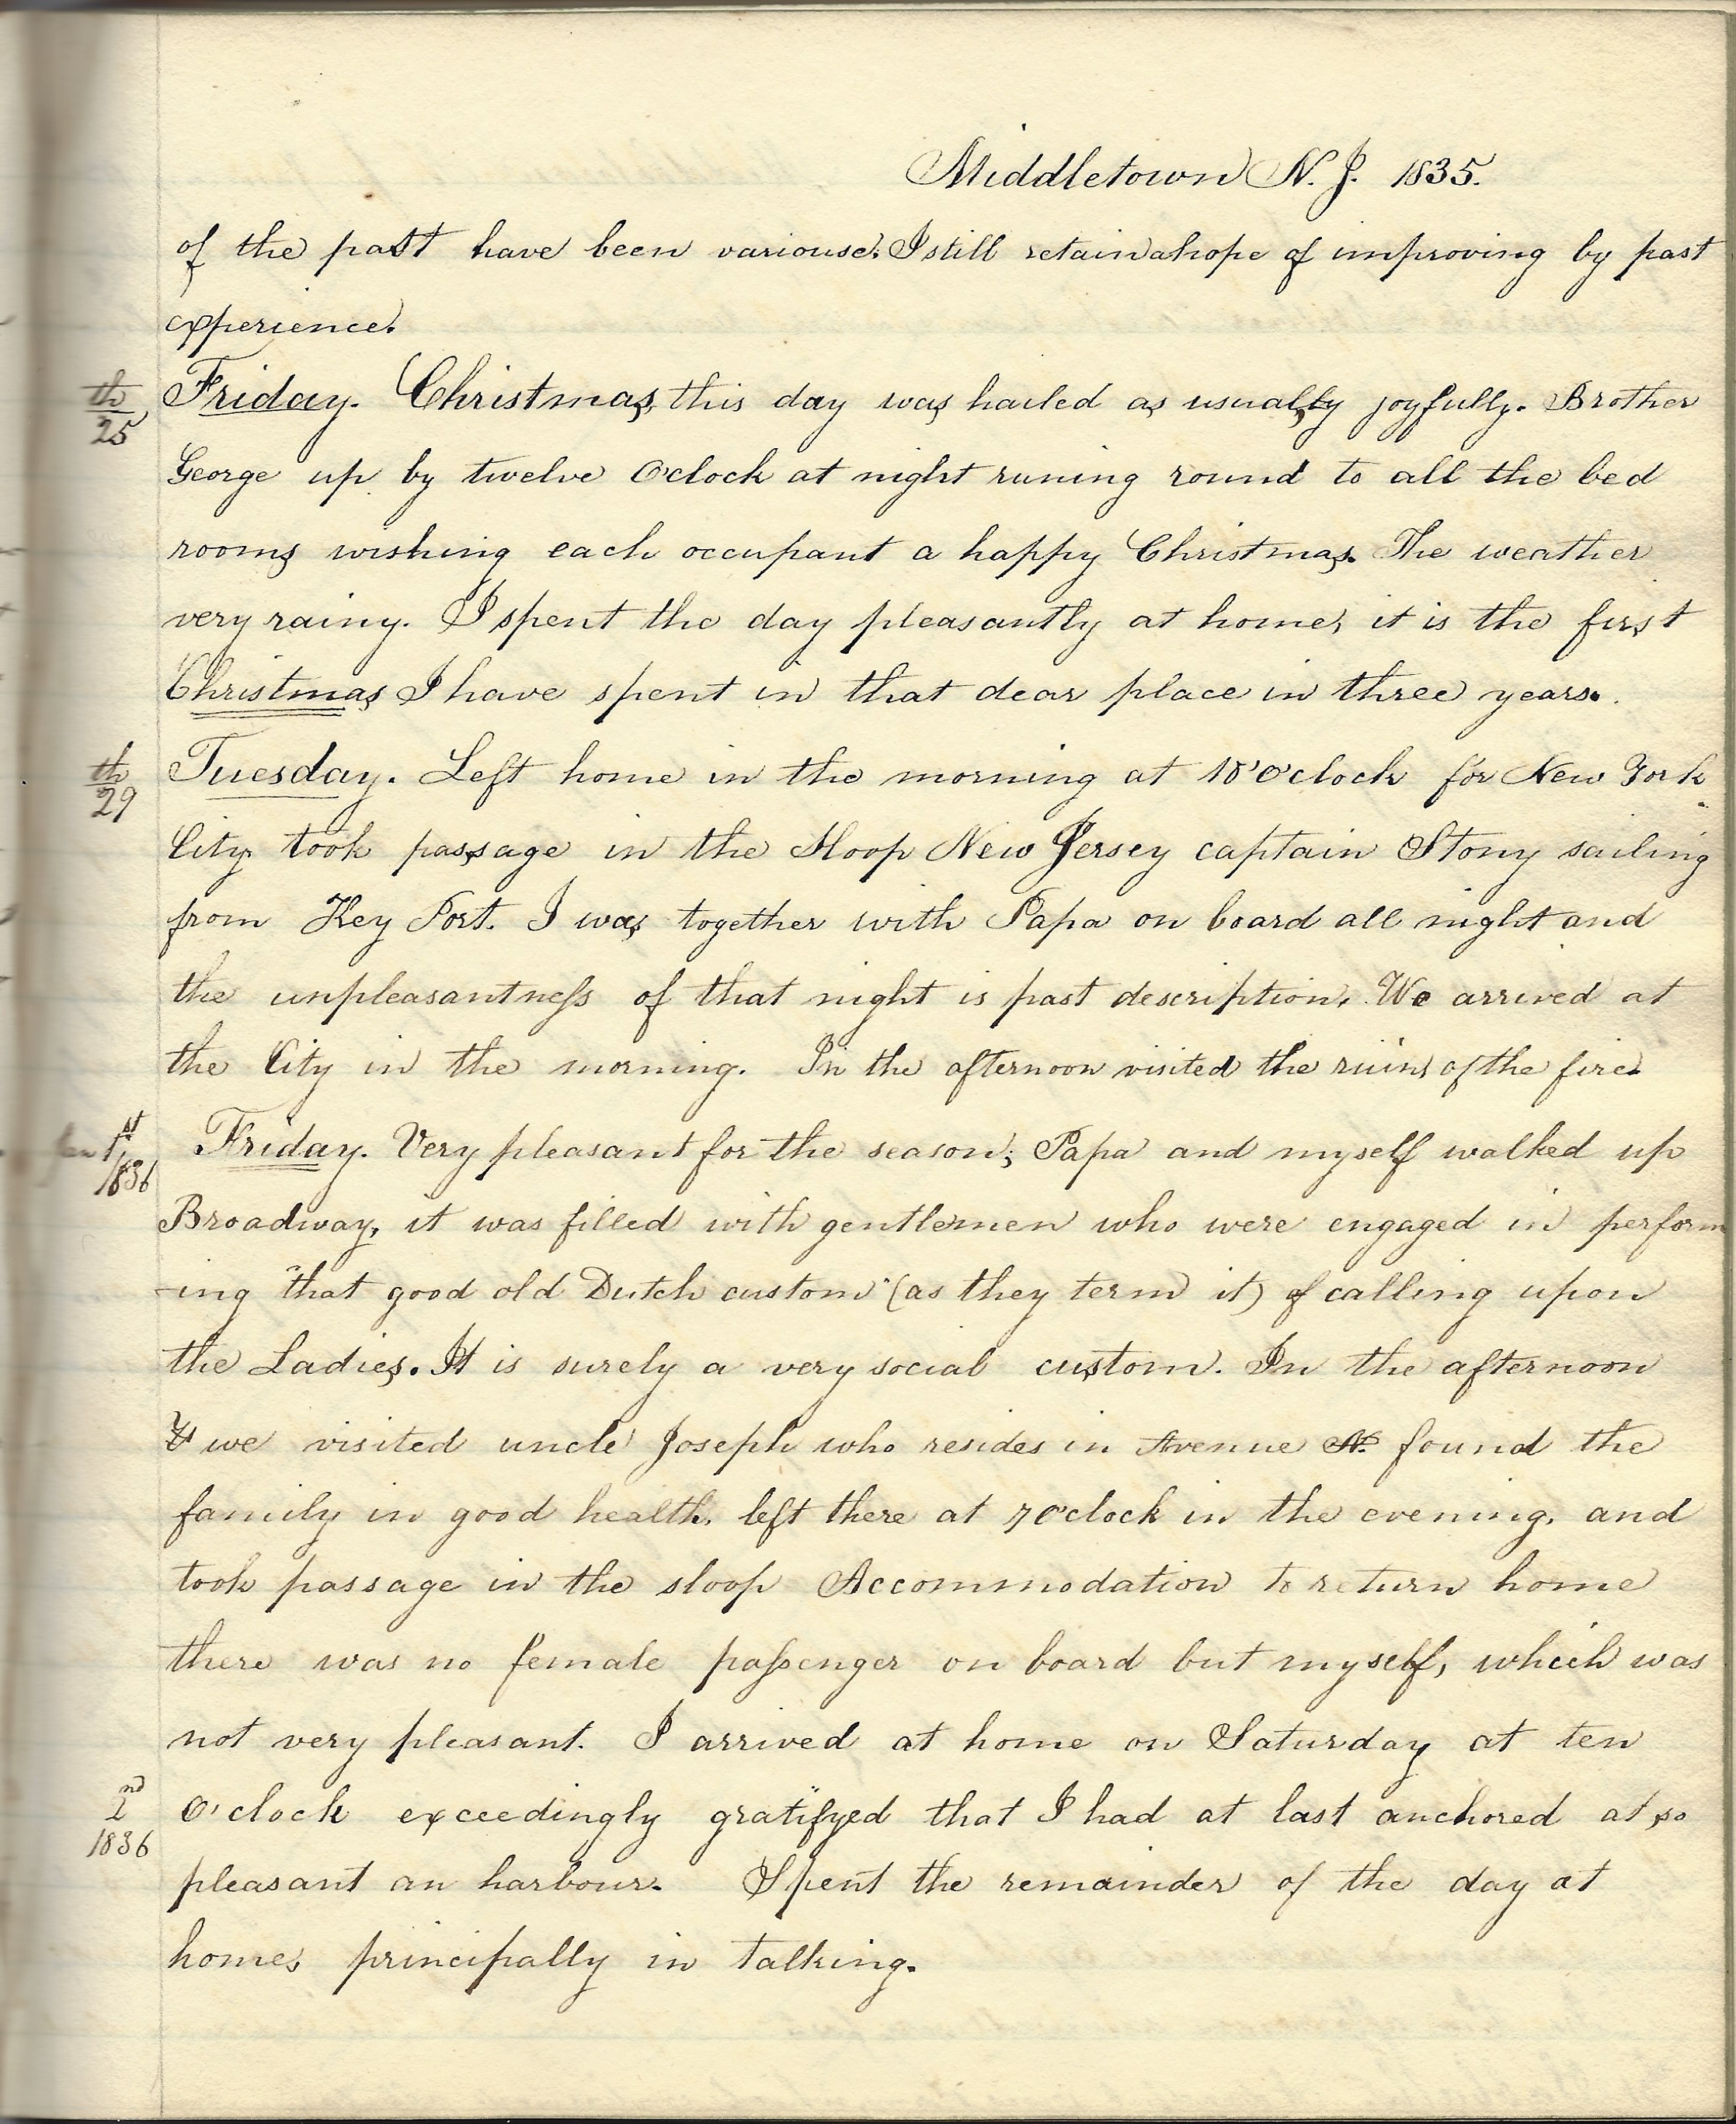 Middletown N. J. 1835.
of the past have been variouse. I still retain a hope of improving by past
experience.
th
25
Friday. Christmas, this day was hailed as usually joyfully. Brother
George up by twelve O'clock at night runing round to all the bed
rooms wishing each occupant a happy Christmas. The weather
very rainy. I spent the day pleasantly at home, it is the first
Christmas I have spent in that dear place in three years.
th
29
Tuesday. Left home in the morning at 10 'o'clock for New York
City took passage in the Sloop New Jersey captain Stony sailing
from Key Port. I was together with Papa on board all night and
the unpleasantness of that night is past description. We arrived at
the City in the morning. In the afternoon visited the ruins of the fire.
Jan 1st
1836
Friday. Very pleasant for the season; Papa and myself walked up
Broadway, it was filled with gentlemen who were engaged in perform
-ing "that good old Dutch custom" (as they term it) of calling upon
the Ladies. It is surely a very social custom. In the afternoon
we visited uncle Joseph who resides in Avenue found the
family in good health, left there at 7 O'clock in the evening, and
took passage in the sloop Accommodation to return home
there was no female passenger on board but myself, which was
not very pleasant. I arrived at home on Saturday at ten
2nd
1836
O'clock exceedingly gratifyed that I had at last anchored at so
pleasant an harbour. Spent the remainder of the day at
home, principally in talking.